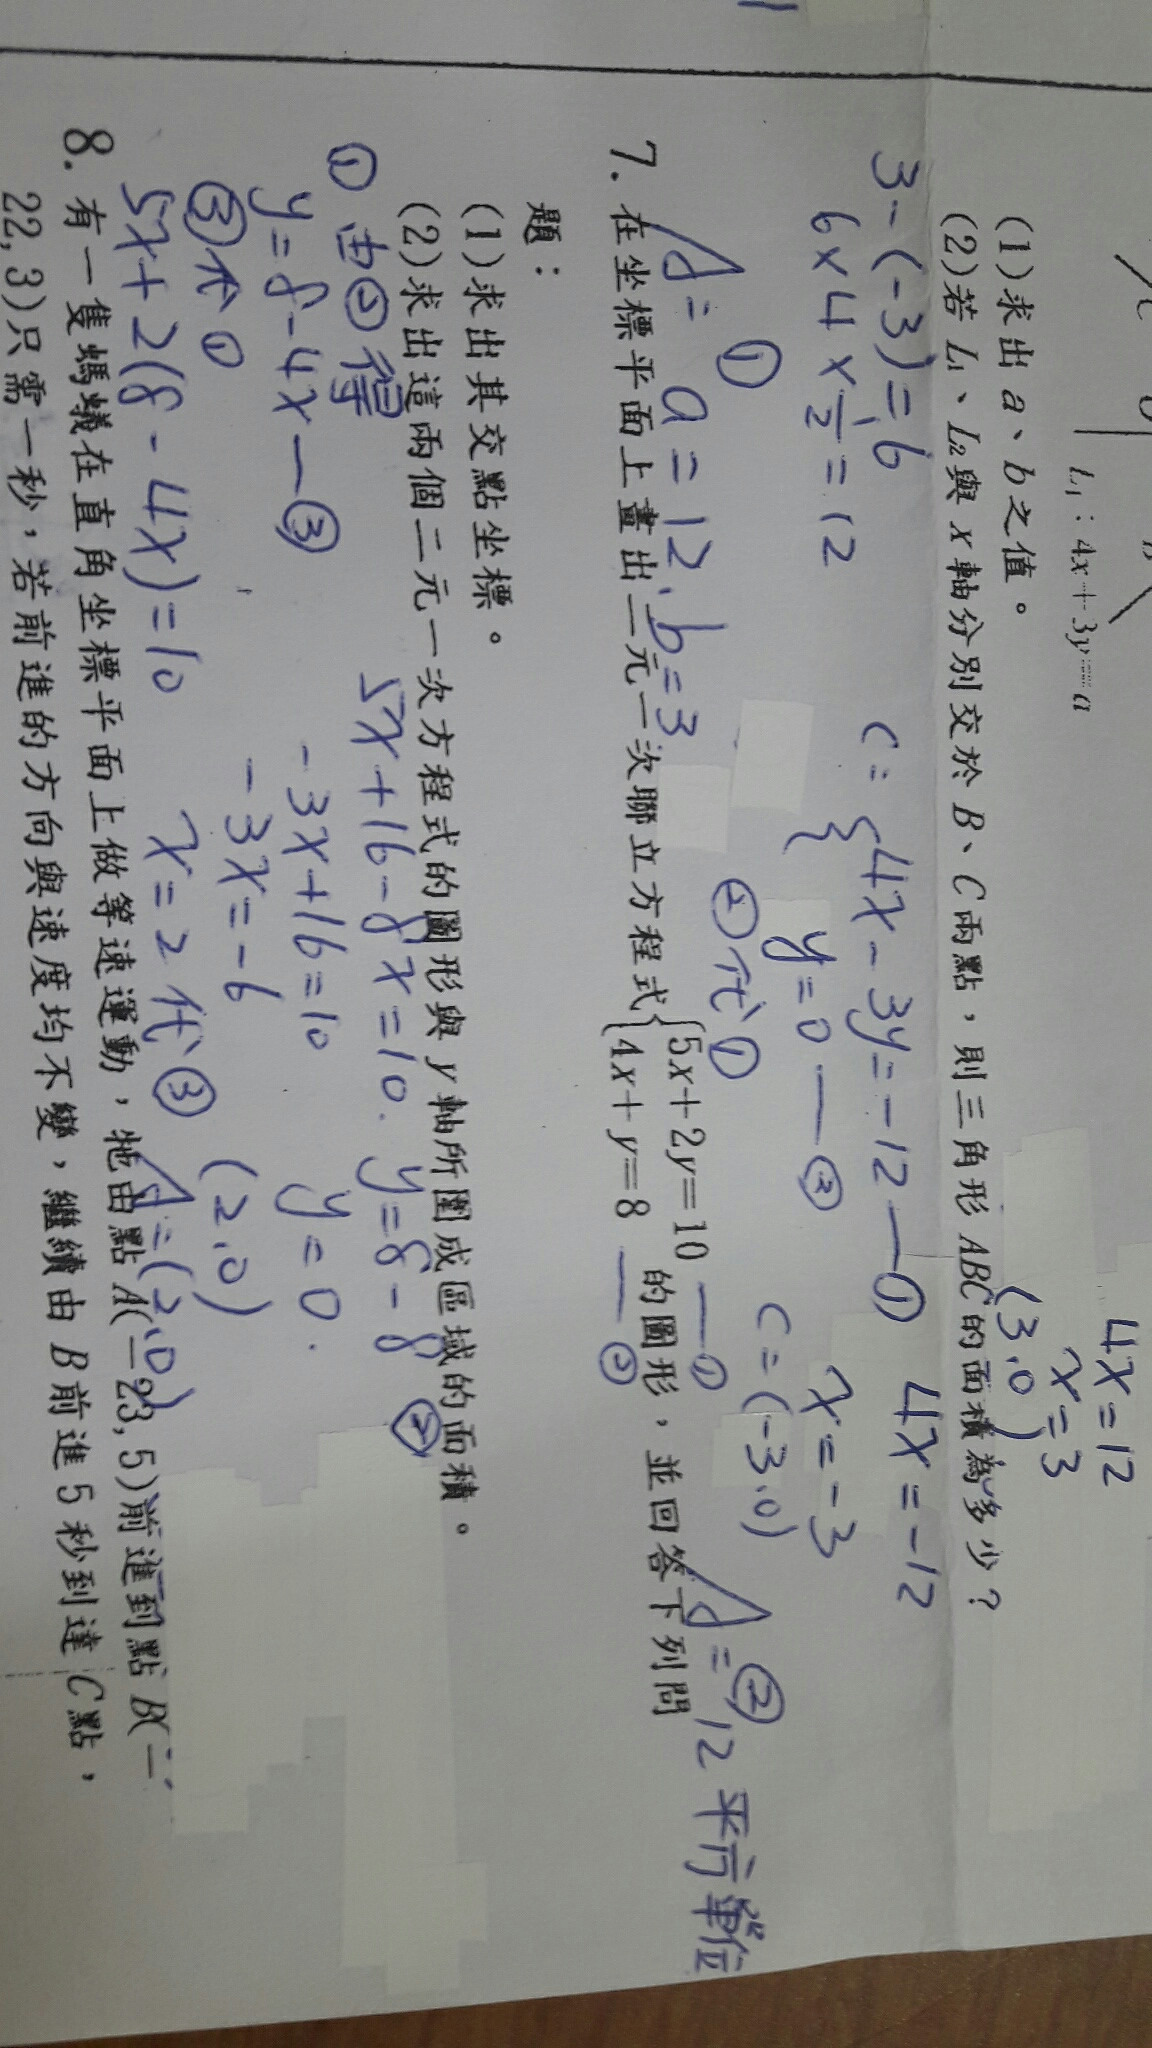 L₁：4x＋3y＝a
4x=12
x=3
(3,0)
(1)求出 a、b之值。
(2)若 L₁、L₂與 x 軸分別交於 B、C 兩點，則三角形 ABC 的面積為多少？
3-(-3)=6
6×4×1/2=12
C:{4x-3y=-12—①
y=0—②
4x=-12
x=-3
②代①
C=(-3,0)
①
A= a=12, b=3
②
A=12平方單位
7. 在坐標平面上畫出二元一次聯立方程式{5x＋2y＝10 —①
4x＋y＝8 —②
的圖形，並回答下列問
題：
(1)求出其交點坐標。
(2)求出這兩個二元一次方程式的圖形與 y 軸所圍成區域的面積。
① 由②得
y=8-4x—③
③代①
5x+2(8-4x)=10
5x+16-8x=10.
-3x+16=10
-3x=-6
x=2代③
y=8-8
y=0.
(2,0)
A=(2,0)
②
8. 有一隻螞蟻在直角坐標平面上做等速運動，牠由點 A(－23, 5)前進到點 B(－
22, 3)只需一秒，若前進的方向與速度均不變，繼續由 B 前進 5 秒到達 C 點，